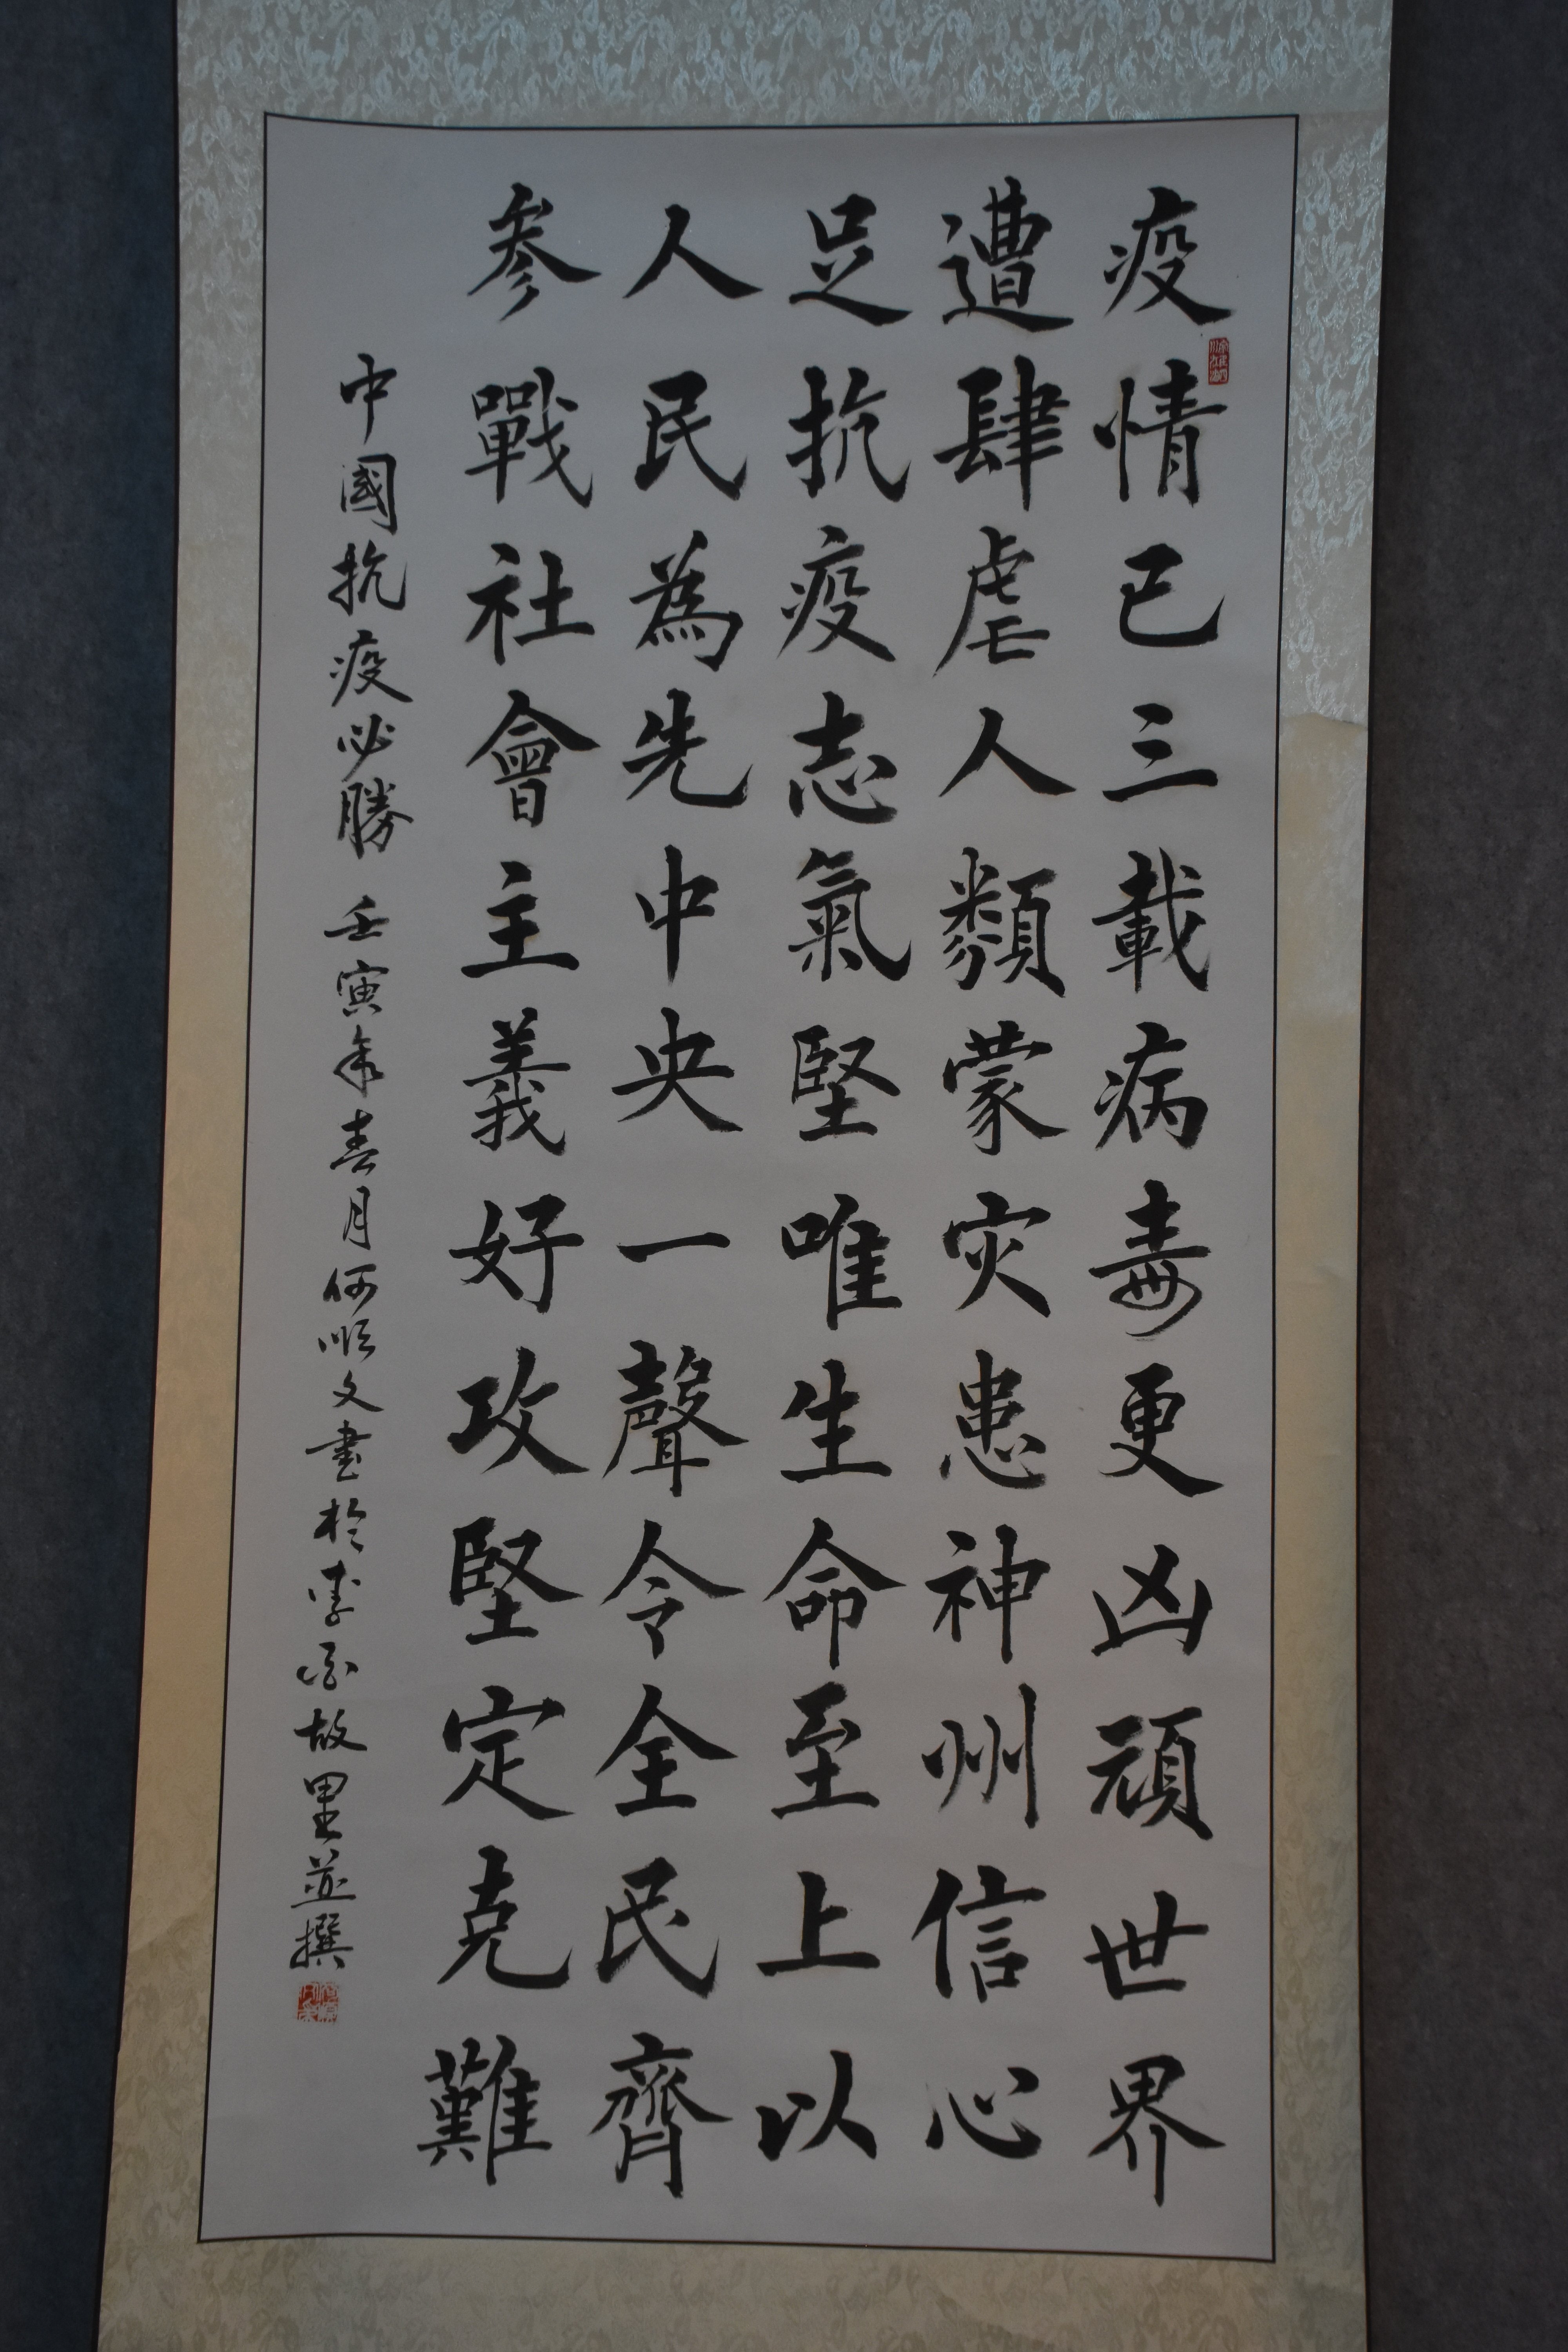 疫情已三載病毒更凶頑世界
遭肆虐人類蒙灾患神州信心
足抗疫志氣堅唯生命至上以
人民為先中央一聲令全民齊
参戰社會主義好攻堅定克難
中國抗疫必勝 壬寅年春月何順文書於李白故里並撰